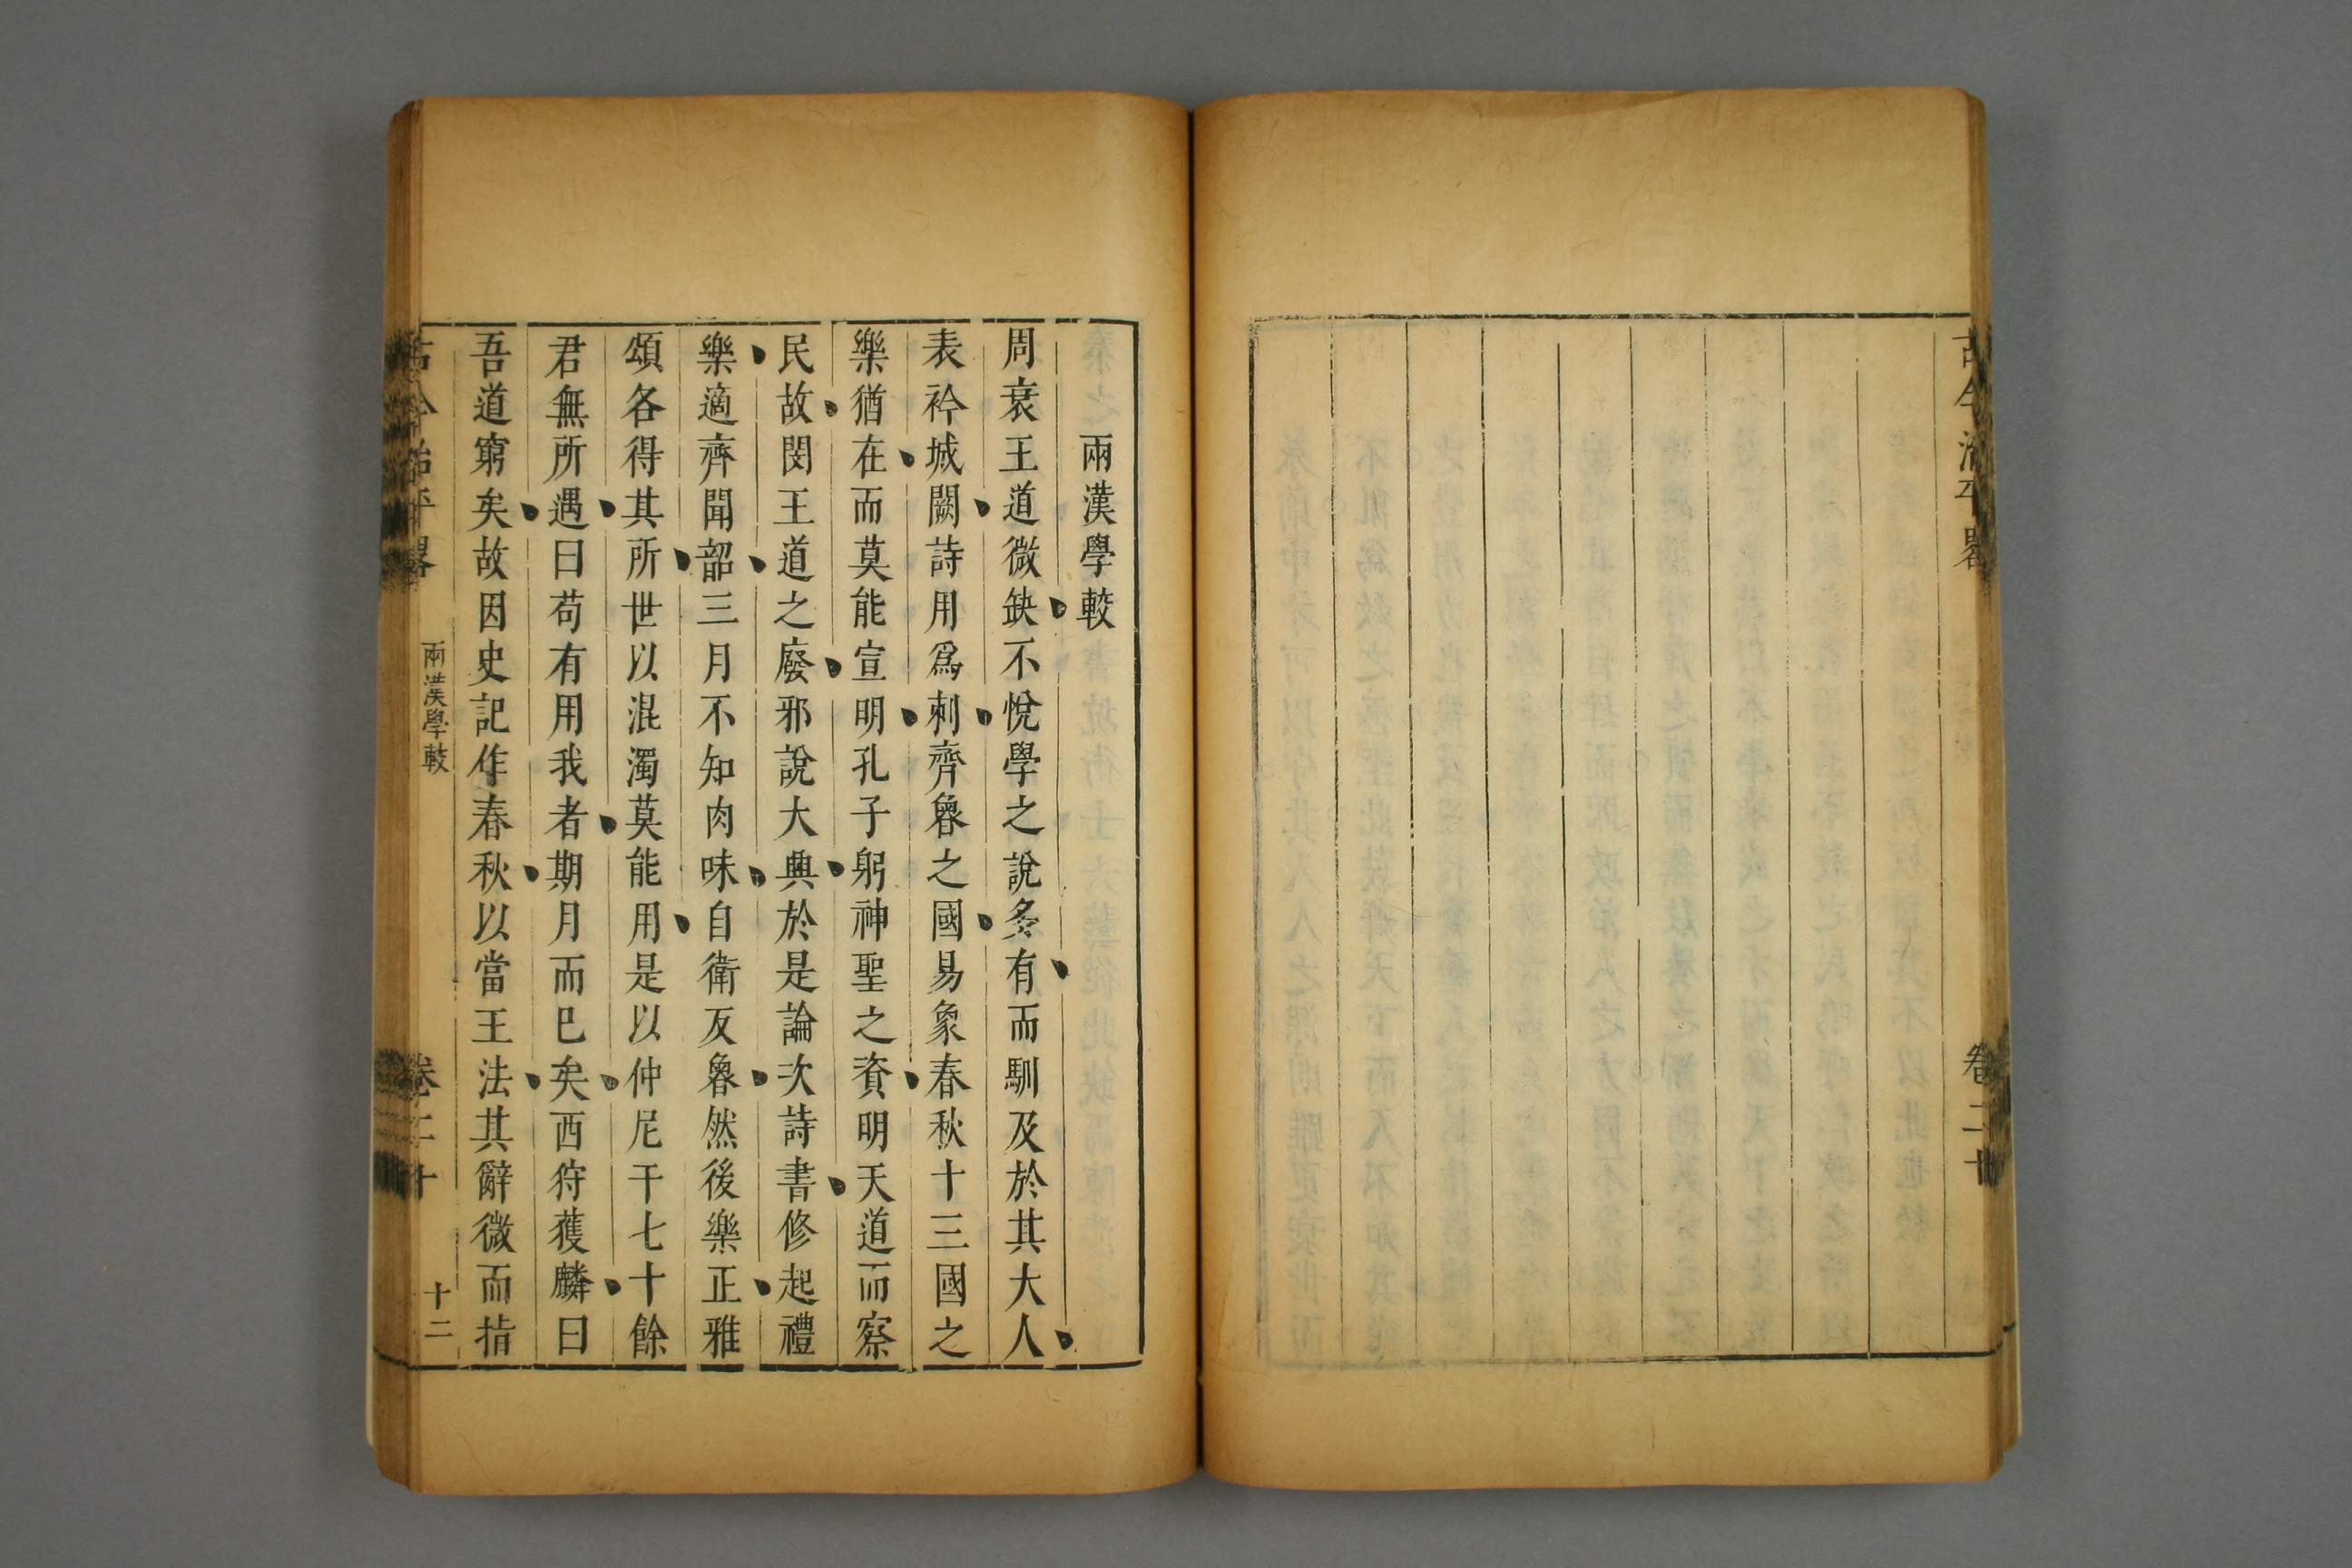 古今治平畧
卷二十
兩漢學較
周衰王道微缺不悅學之說多有而馴及於其大人
表衿城闕詩用爲刺齊魯之國易象春秋十三國之
樂猶在而莫能宣明孔子躬神聖之資明天道而察
民故閔王道之廢邪說大興於是論次詩書修起禮
樂適齊聞韶三月不知肉味自衛反魯然後樂正雅
頌各得其所世以混濁莫能用是以仲尼干七十餘
君無所遇曰苟有用我者期月而已矣西狩獲麟曰
吾道窮矣故因史記作春秋以當王法其辭微而指
古今治平畧
兩漢學較
卷二十
十二